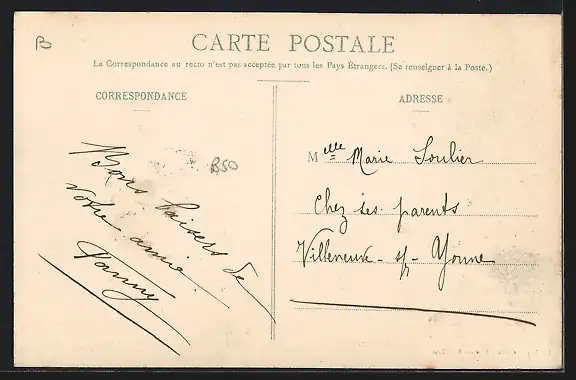 B
CARTE POSTALE
La Correspondance au recto n'est pas acceptée par tous les Pays Étrangers. (Se renseigner à la Poste.)
CORRESPONDANCE
B50
Bons baisers de
votre amie
Fanny
ADRESSE
Melle Marie Soulier
Chez ses parents
Villeneuve - s/- Yonne